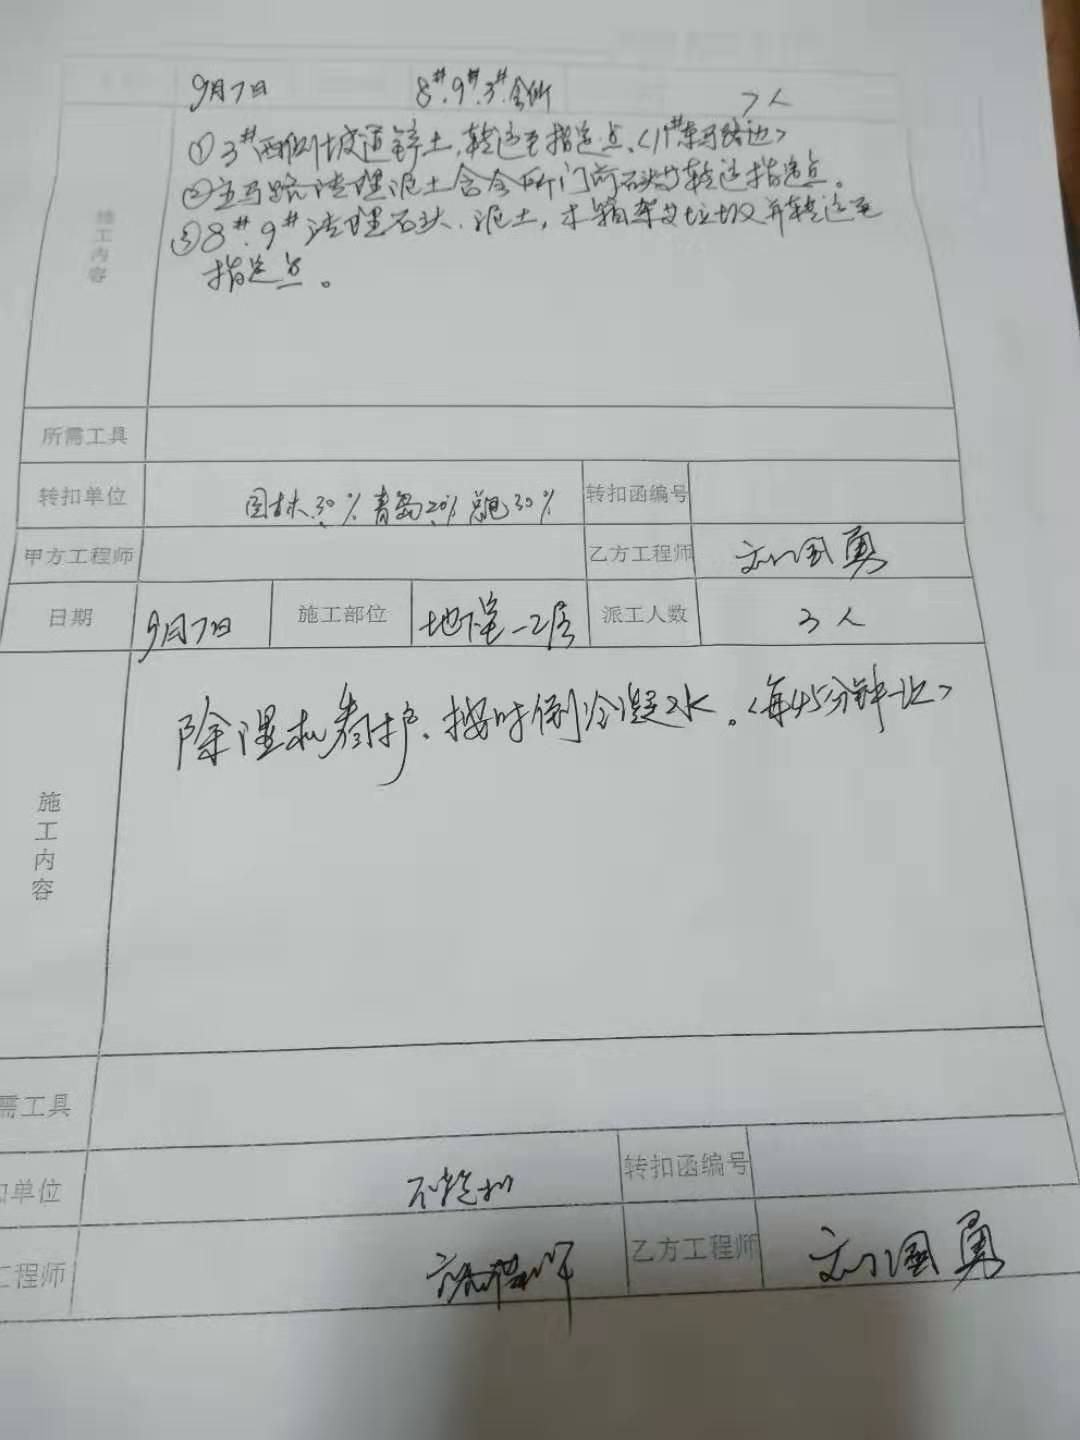 9月7日 8#.9#.3#.会所 7人
施工内容
①3#西侧坡道锌土,转运至指定点.<11#东马路边>
②主马路清理泥土含会所门前石头等转运指定点。
③8#.9#清理石头.泥土,木箱架及垃圾并转运至
指定点。
所需工具
转扣单位 园林30% 青岛20% 总包30% 转扣函编号
甲方工程师 乙方工程师 刘国勇
日期 9月7日 施工部位 地下室-2层 派工人数 3人
施工内容
除湿机看护、按时倒冷凝水。<每45分钟一次>
需工具
扣单位 不转扣 转扣函编号
工程师 乙方工程师 刘国勇